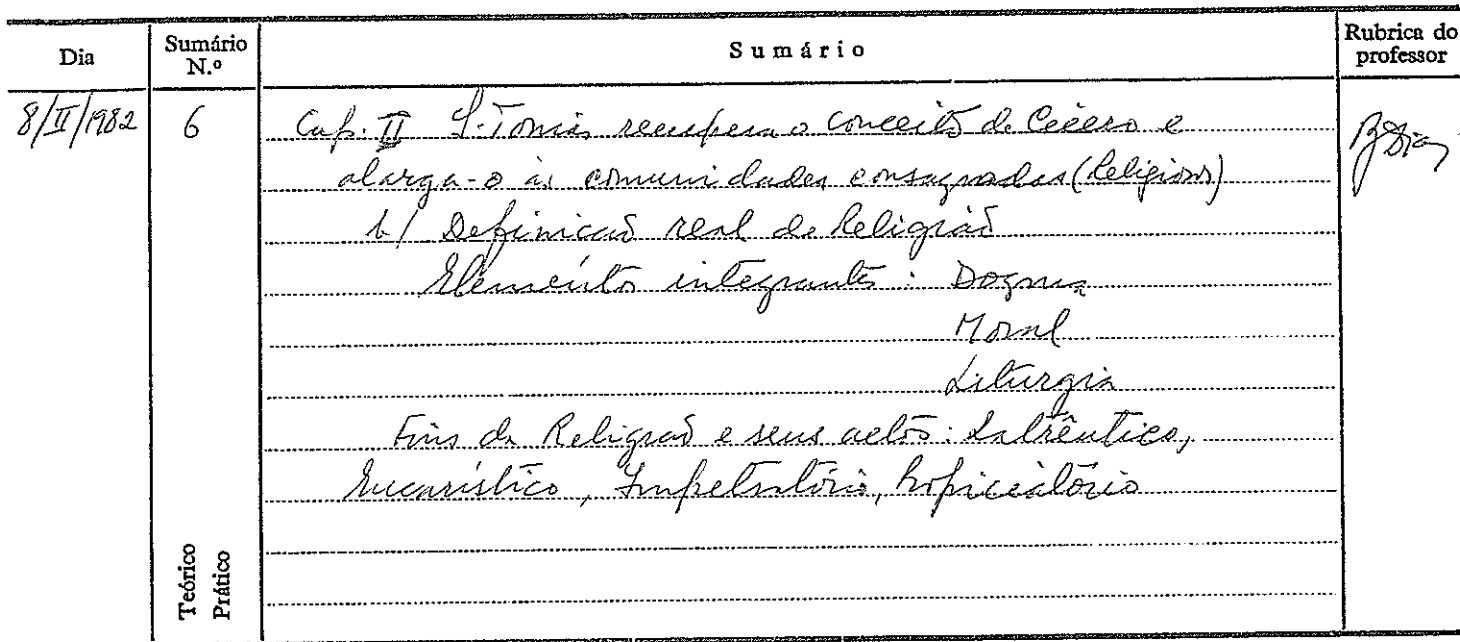 Dia
Sumário N.º
Sumário
Rubrica do professor
8/II/1982
6
Cap. II S. Tomás recupera o conceito de Cícero e
alarga-o às comunidades consagradas (Religiosos)
b/ Definição real de Religião
Elementos integrantes: Dogma
Moral
Liturgia
Fins da Religião e seus actos: Latrêutico,
Eucarístico, Impetratório, Propiciatório
BDias
Teórico
Prático